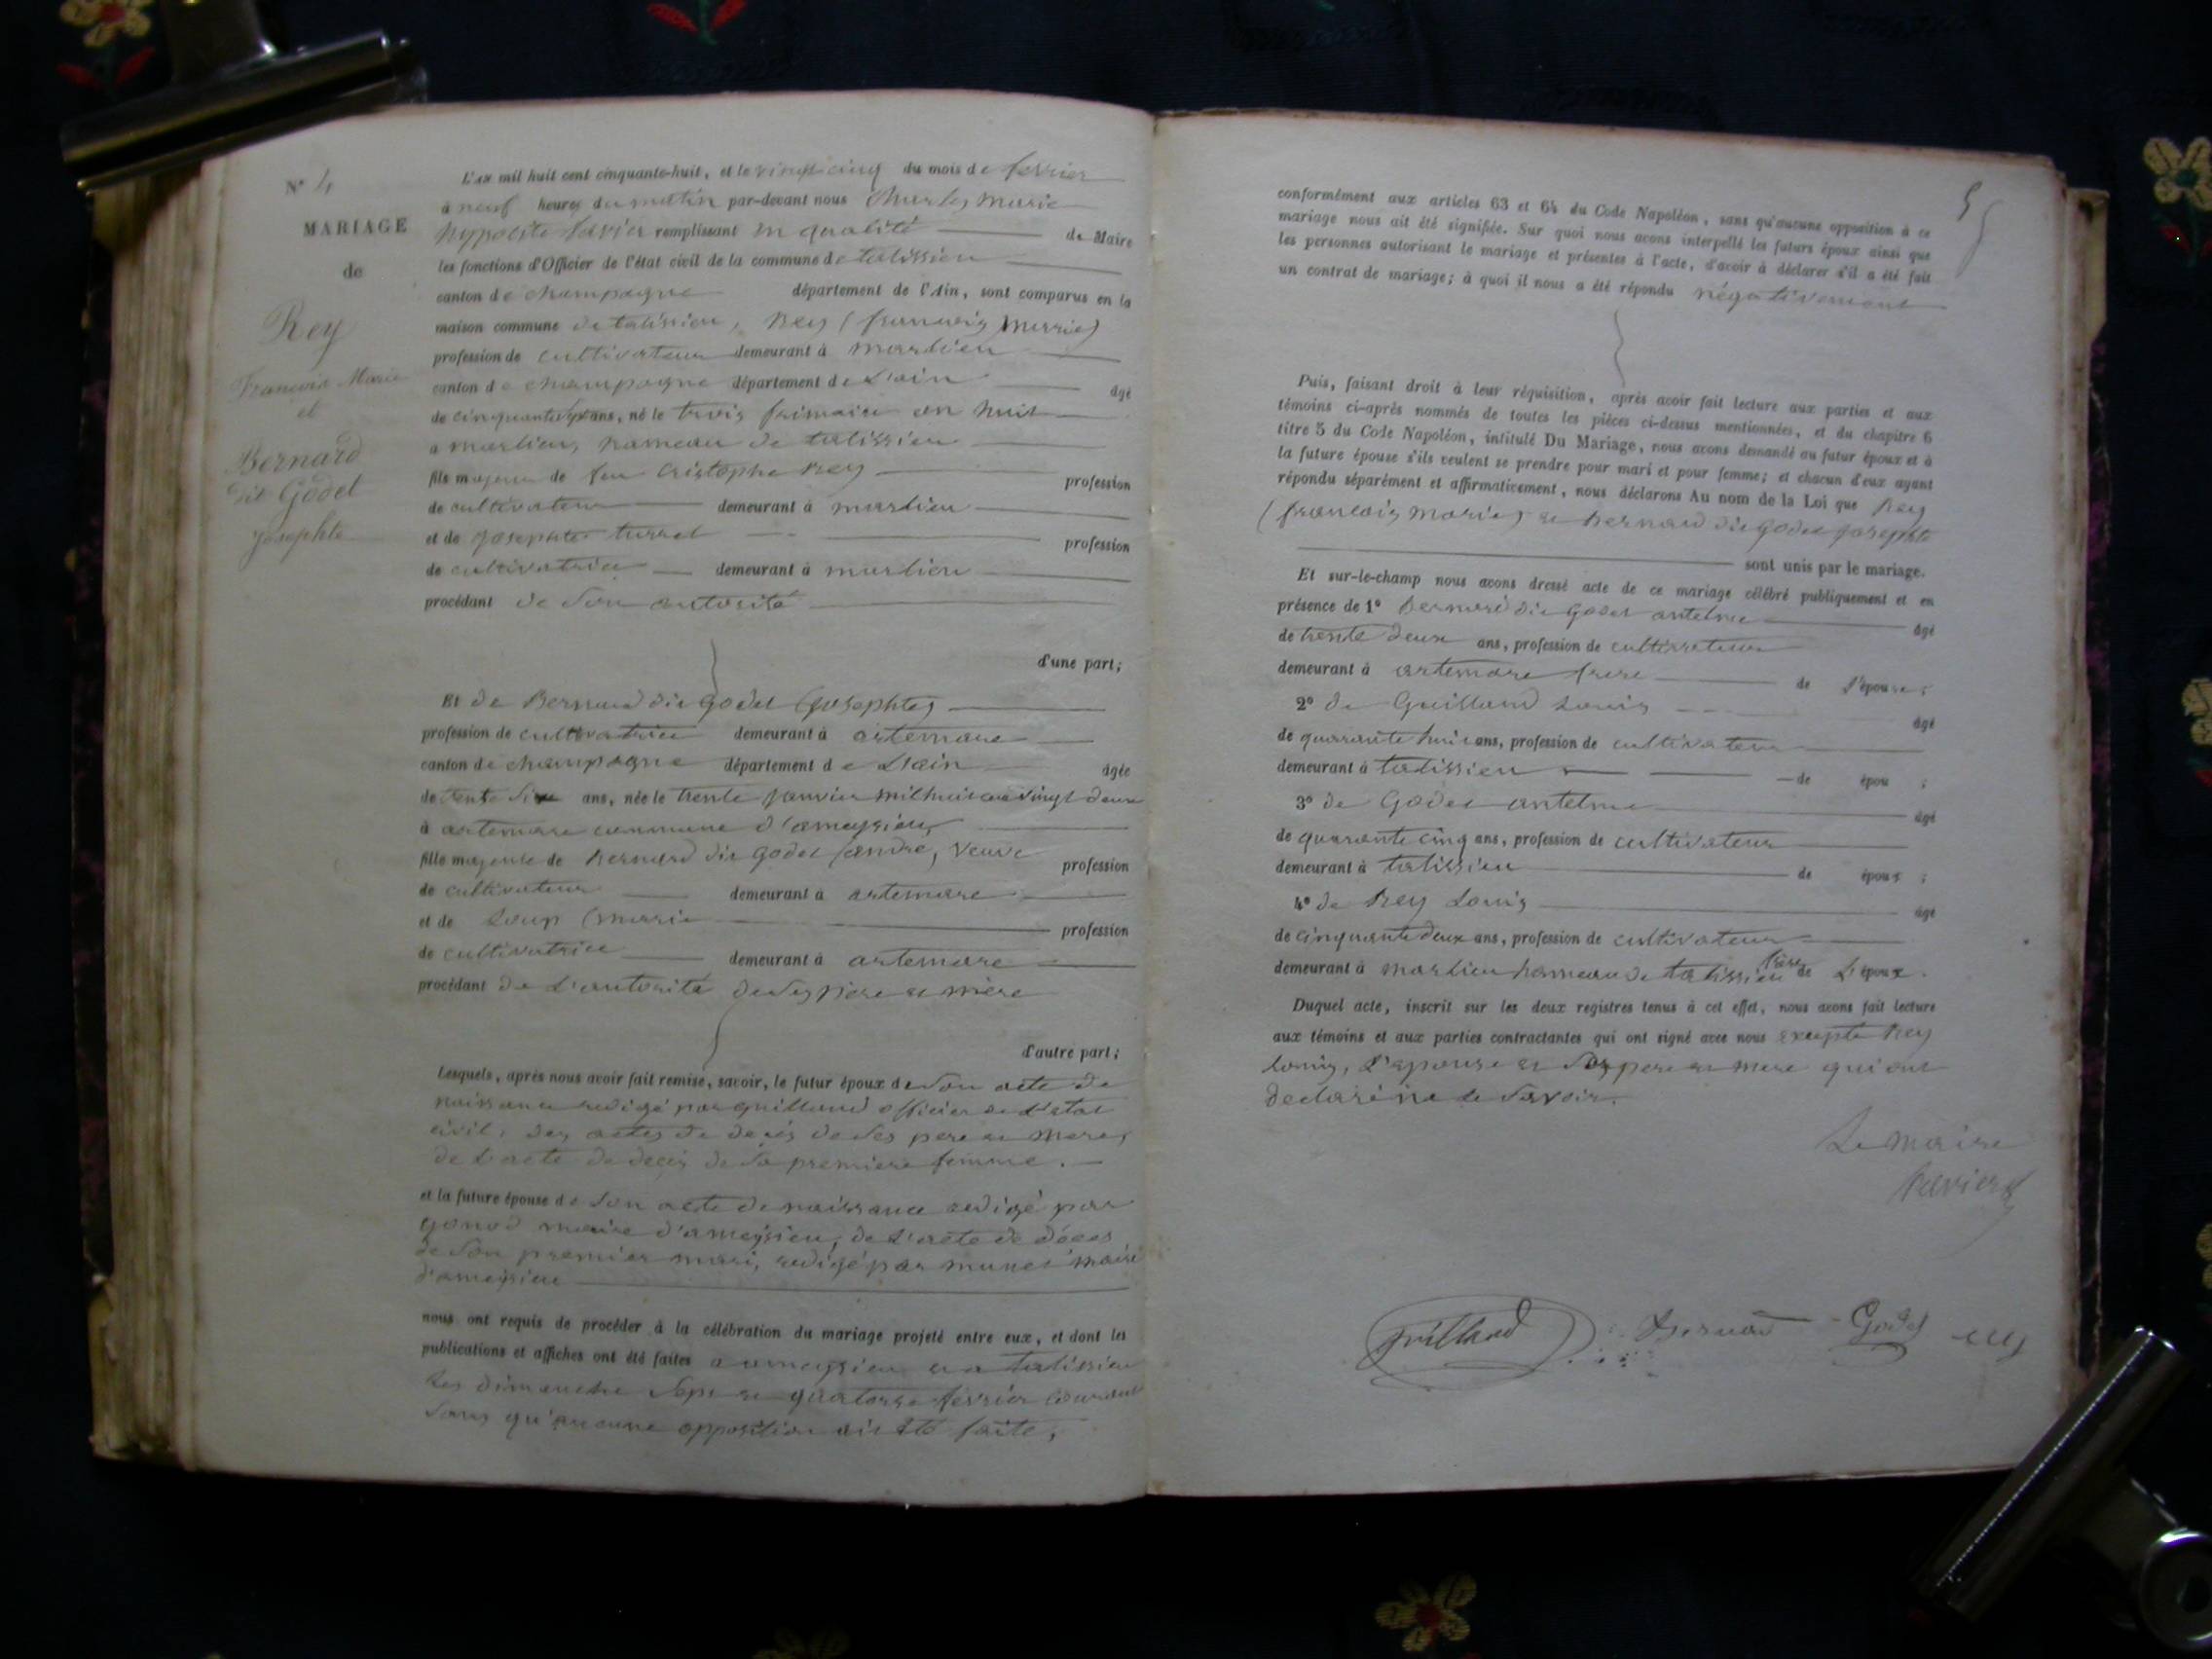 N° 4
MARIAGE
de
Rey
François Marie
et
Bernard
dit Godet
Josephte
L'an mil huit cent cinquante-huit, et le vingt cinq du mois de fevrier
à neuf heures du matin par-devant nous Charles Marie
hyppolite Xavier remplissant en qualité de Maire
les fonctions d'Officier de l'état civil de la commune de talissieu
canton de champagne département de l'Ain, sont comparus en la
maison commune de talissieu, Rey (francois marie)
profession de cultivateur demeurant à marlieu
canton de champagne département de L'ain âgé
de cinquante ans, né le trois frimaire an huit
a marlieu, hameau de talissieu
fils majeur de feu Cristophe Rey profession
de cultivateur demeurant à marlieu
et de josephte turrel profession
de cultivatrice demeurant à marlieu
procédant de son autorité
d'une part;
Et de Bernard dit godet (josephte)
profession de cultivatrice demeurant à artemare
canton de champagne département de L'ain âgée
de trente six ans, née le trente janvier mil huit cent vingt deux
à artemare commune d'ameysieu,
fille majeure de Bernard dit godet (andre, veuve profession
de cultivateur demeurant à artemare
et de Loup (marie profession
de cultivatrice demeurant à artemare
procédant de L'autorité de ses père et mère
d'autre part;
Lesquels, après nous avoir fait remise, savoir, le futur époux de son acte de
naissance redigé par guilland officier de L'état
civil, des actes de deces de ses pere et mere,
de L'acte de deces de sa premiere femme.
et la future épouse de son acte de naissance redigé par
gonod maire d'ameysieu, de L'acte de déces
de son premier mari, redigé par maire
d'ameysieu
nous ont requis de procéder à la célébration du mariage projeté entre eux, et dont les
publications et affiches ont été faites a ameysieu et a talissieu
les dimanche sept et quatorze fevrier courant
sans qu'aucune opposition ait été faite,
5
conformément aux articles 63 et 64 du Code Napoléon, sans qu'aucune opposition à ce
mariage nous ait été signifiée. Sur quoi nous avons interpellé les futurs époux ainsi que
les personnes autorisant le mariage et présentes à l'acte, d'avoir à déclarer s'il a été fait
un contrat de mariage; à quoi il nous a été répondu négativement
Puis, faisant droit à leur réquisition, après avoir fait lecture aux parties et aux
témoins ci-après nommés de toutes les pièces ci-dessus mentionnées, et du chapitre 6
titre 5 du Code Napoléon, intitulé Du Mariage, nous avons demandé au futur époux et à
la future épouse s'ils veulent se prendre pour mari et pour femme; et chacun d'eux ayant
répondu séparément et affirmativement, nous déclarons Au nom de la Loi que Rey
(francois marie) et Bernard dit godet josephte
sont unis par le mariage.
Et sur-le-champ nous avons dressé acte de ce mariage célébré publiquement et en
présence de 1° Bernard dit godet antelme âgé
de trente deux ans, profession de cultivateur
demeurant à artemare frere de L'épouse;
2° de Guilland Louis âgé
de quarante huit ans, profession de cultivateur
demeurant à talissieu de épou ;
3° de Godet antelme âgé
de quarante cinq ans, profession de cultivateur
demeurant à talissieu de épous ;
4° de Rey Louis âgé
de cinquante deux ans, profession de cultivateur
demeurant à marlieu hameau de talissieu frère de L'époux.
Duquel acte, inscrit sur les deux registres tenus à cet effet, nous avons fait lecture
aux témoins et aux parties contractantes qui ont signé avec nous excepté Rey
Louis, L'epouse et ses pere et mere qui ont
declaré ne le savoir.
Le maire
Xavier
Guilland Bernard Godet rey